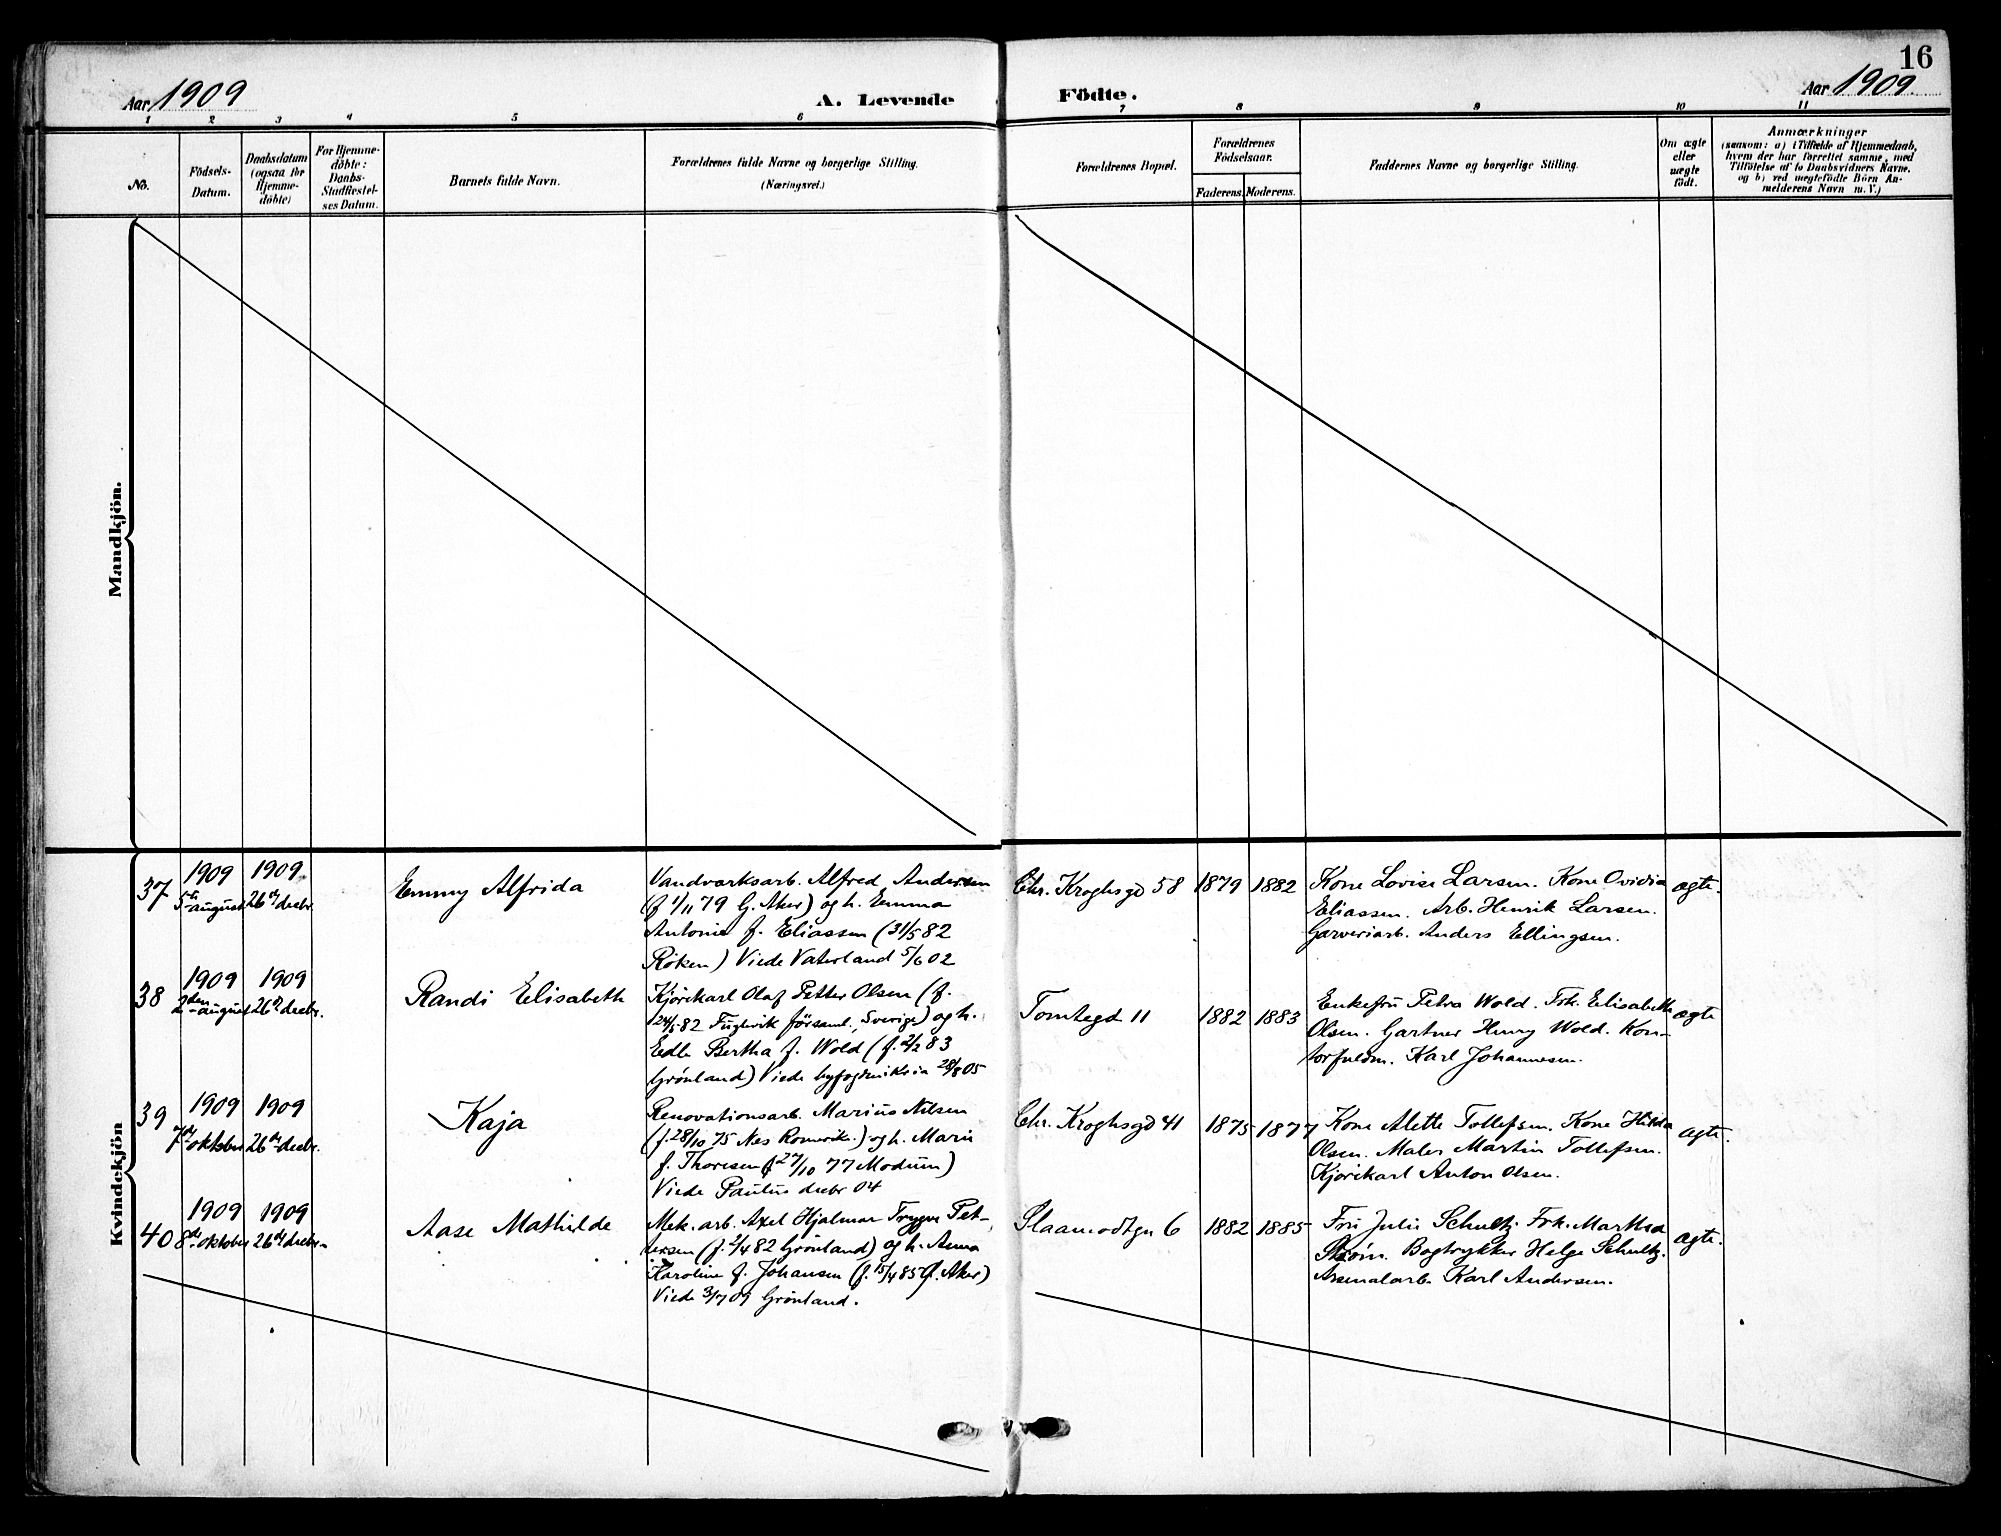 16
Aar 1909
A. Levende
Födte.
Aar 1909.
1 2 3 4 5 6 7 8 9 10 11
No.
Födsels-
Datum.
Daabsdatum
(ogsaa for
Hjemme-
døbte)
For Hjemme-
døbte:
Daabs-
Stadfæstel-
ses Datum.
Barnets fulde Navn.
Forældrenes fulde Navne og borgerlige Stilling.
(Næringsvei.)
Forældrenes Bopæl.
Forældrenes
Födselsaar.
Faderens. Moderens.
Faddernes Navne og borgerlige Stilling.
Om ægte
eller
uægte
født.
Anmærkninger
(saasom: a) i Tilfælde af Hjemmedaab,
hvem der har forrettet samme, med
Tilføielse af to Daabsvidners Navne.
og b) ved uægtefødte Börn An-
melderens Navn m. V.)
Mandkjön.
Kvindekjön
37
1909
5te august
1909
26de decbr.
Emmy Alfrida
Vandværksarb. Alfred Andersen
(f 1/11 79 G. Aker) og h. Emma
Antonie f. Eliassen (31/5 82
Røken) Viede Vaterland 5/6 02
Chr. Kroghsgd 58
1879
1882
Kone Lovise Larsen. Kone Ovidia
Eliassen. Arb. Henrik Larsen.
Garveriarb. Anders Ellingsen.
ægte.
38
1909
2den august
1909
26de decbr.
Randi Elisabeth
Kjørekarl Olaf Petter Olsen (f.
24/5 82 Fuglevik församl., Sverige) og h.
Edle Bertha f. Wold (f. 2/2 83
Grønland) Viede byfogden 28/8 05
Tomtegd 11
1882
1883
Enkefru Petra Wold. Frk. Elisabeth
Olsen. Gartner Henry Wold. Kon-
torfuldm. Karl Johannesen.
ægte
39
1909
7de oktober
1909
26de decbr.
Kaja
Renovationsarb. Marius Nilsen
(f. 28/10 75 Nes Romerike.) og h. Marie
f. Thoresen f 27/10 77 Modum)
Viede Paulus decbr 04
Chr. Kroghsgd 41
1875
1877
Kone Alette Tollefsen. Kone Hilda
Olsen. Maler Martin Tollefsen.
Kjørekarl Anton Olsen.
ægte.
40
1909
8de oktober
1909
26de decbr.
Aase Mathilde
Mek. arb. Axel Hjalmar Trygve Pet-
tersen (f. 2/4 82 Grønland) og h. Anna
Karoline f. Johansen (f. 15/4 85 G. Aker)
Viede 3/7 09 Grønland.
Slaamodtgn 6
1882
1885
Fru Julie Schultz. Frk. Martha
Strøm. Bogtrykker Helge Schultz.
Arsenalarb. Karl Andersen.
ægte.